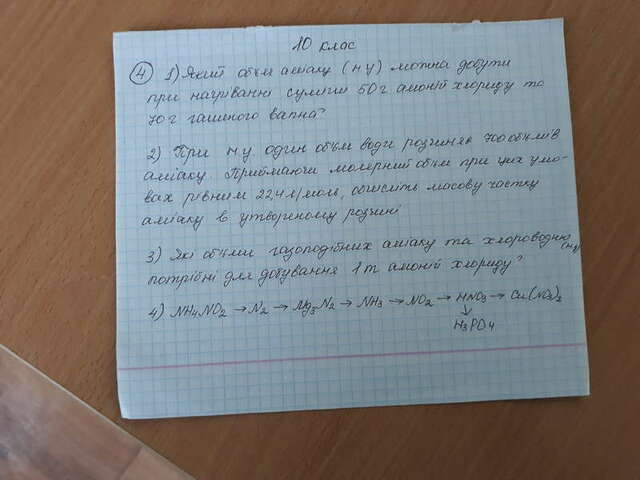 10 клас
④ 1) Який об'єм аміаку (н у) можна добути
при нагріванні суміші 50 г амоній хлориду та
70 г гашеного вапна?
2) При н.у. один об'єм води розчиняє 700 об'ємів
аміаку. Приймаючи молярний об'єм при цих умо-
вах рівним 22,4 л/моль, обчисліть масову частку
аміаку в утвореному розчині
3) Які об'єми газоподібних аміаку та хлороводню (н.у)
потрібні для добування 1 т амоній хлориду?
4) NH₄NO₂ → N₂ → Mg₃N₂ → NH₃ → NO₂ → HNO₃ → Cu(NO₃)₂
↓
H₃PO₄